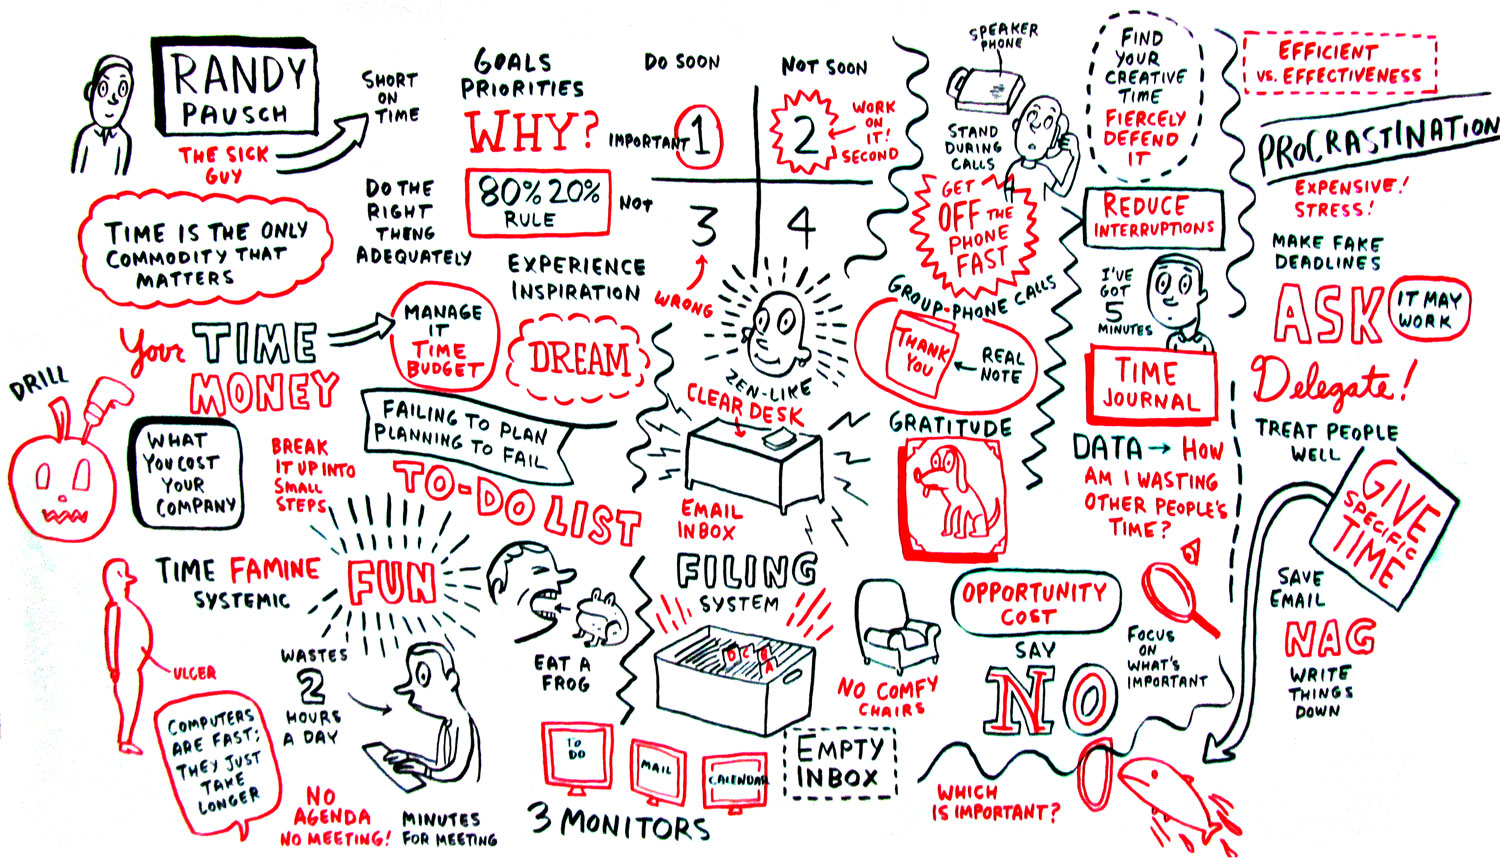 RANDY
PAUSCH
THE SICK
GUY
SHORT
ON
TIME
TIME IS THE ONLY
COMMODITY THAT
MATTERS
GOALS
PRIORITIES
WHY?
80% 20%
RULE
DO THE
RIGHT
THENG
ADEQUATELY
EXPERIENCE
INSPIRATION
DO SOON
NOT SOON
IMPORTANT
1
2
WORK
ON
IT!
SECOND
NOT
3
4
WRONG
Your TIME
MONEY
MANAGE
IT
TIME
BUDGET
DREAM
DRILL
WHAT
YOU COST
YOUR
COMPANY
BREAK
IT UP INTO
SMALL
STEPS
FAILING TO PLAN
PLANNING TO FAIL
TO-DO LIST
TIME FAMINE
SYSTEMIC
FUN
ULCER
COMPUTERS
ARE FAST;
THEY JUST
TAKE
LONGER
WASTES
2
HOURS
A DAY
NO
AGENDA
NO MEETING!
MINUTES
FOR MEETING
EAT A
FROG
ZEN-LIKE
CLEAR DESK
EMAIL
INBOX
FILING
SYSTEM
D C B
A
TO
DO
MAIL
CALENDAR
3 MONITORS
EMPTY
INBOX
SPEAKER
PHONE
STAND
DURING
CALLS
GET
OFF THE
PHONE
FAST
GROUP-PHONE CALLS
THANK
YOU
REAL
NOTE
GRATITUDE
NO COMFY
CHAIRS
OPPORTUNITY
COST
SAY
NO
FOCUS
ON
WHAT'S
IMPORTANT
WHICH
IS IMPORTANT?
FIND
YOUR
CREATIVE
TIME
FIERCELY
DEFEND
IT
REDUCE
INTERRUPTIONS
I'VE
GOT
5
MINUTES
TIME
JOURNAL
DATA → HOW
AM I WASTING
OTHER PEOPLE'S
TIME?
EFFICIENT
VS. EFFECTIVENESS
PROCRASTINATION
EXPENSIVE!
STRESS!
MAKE FAKE
DEADLINES
ASK
IT MAY
WORK
Delegate!
TREAT PEOPLE
WELL
GIVE
SPECIFIC
TIME
SAVE
EMAIL
NAG
WRITE
THINGS
DOWN